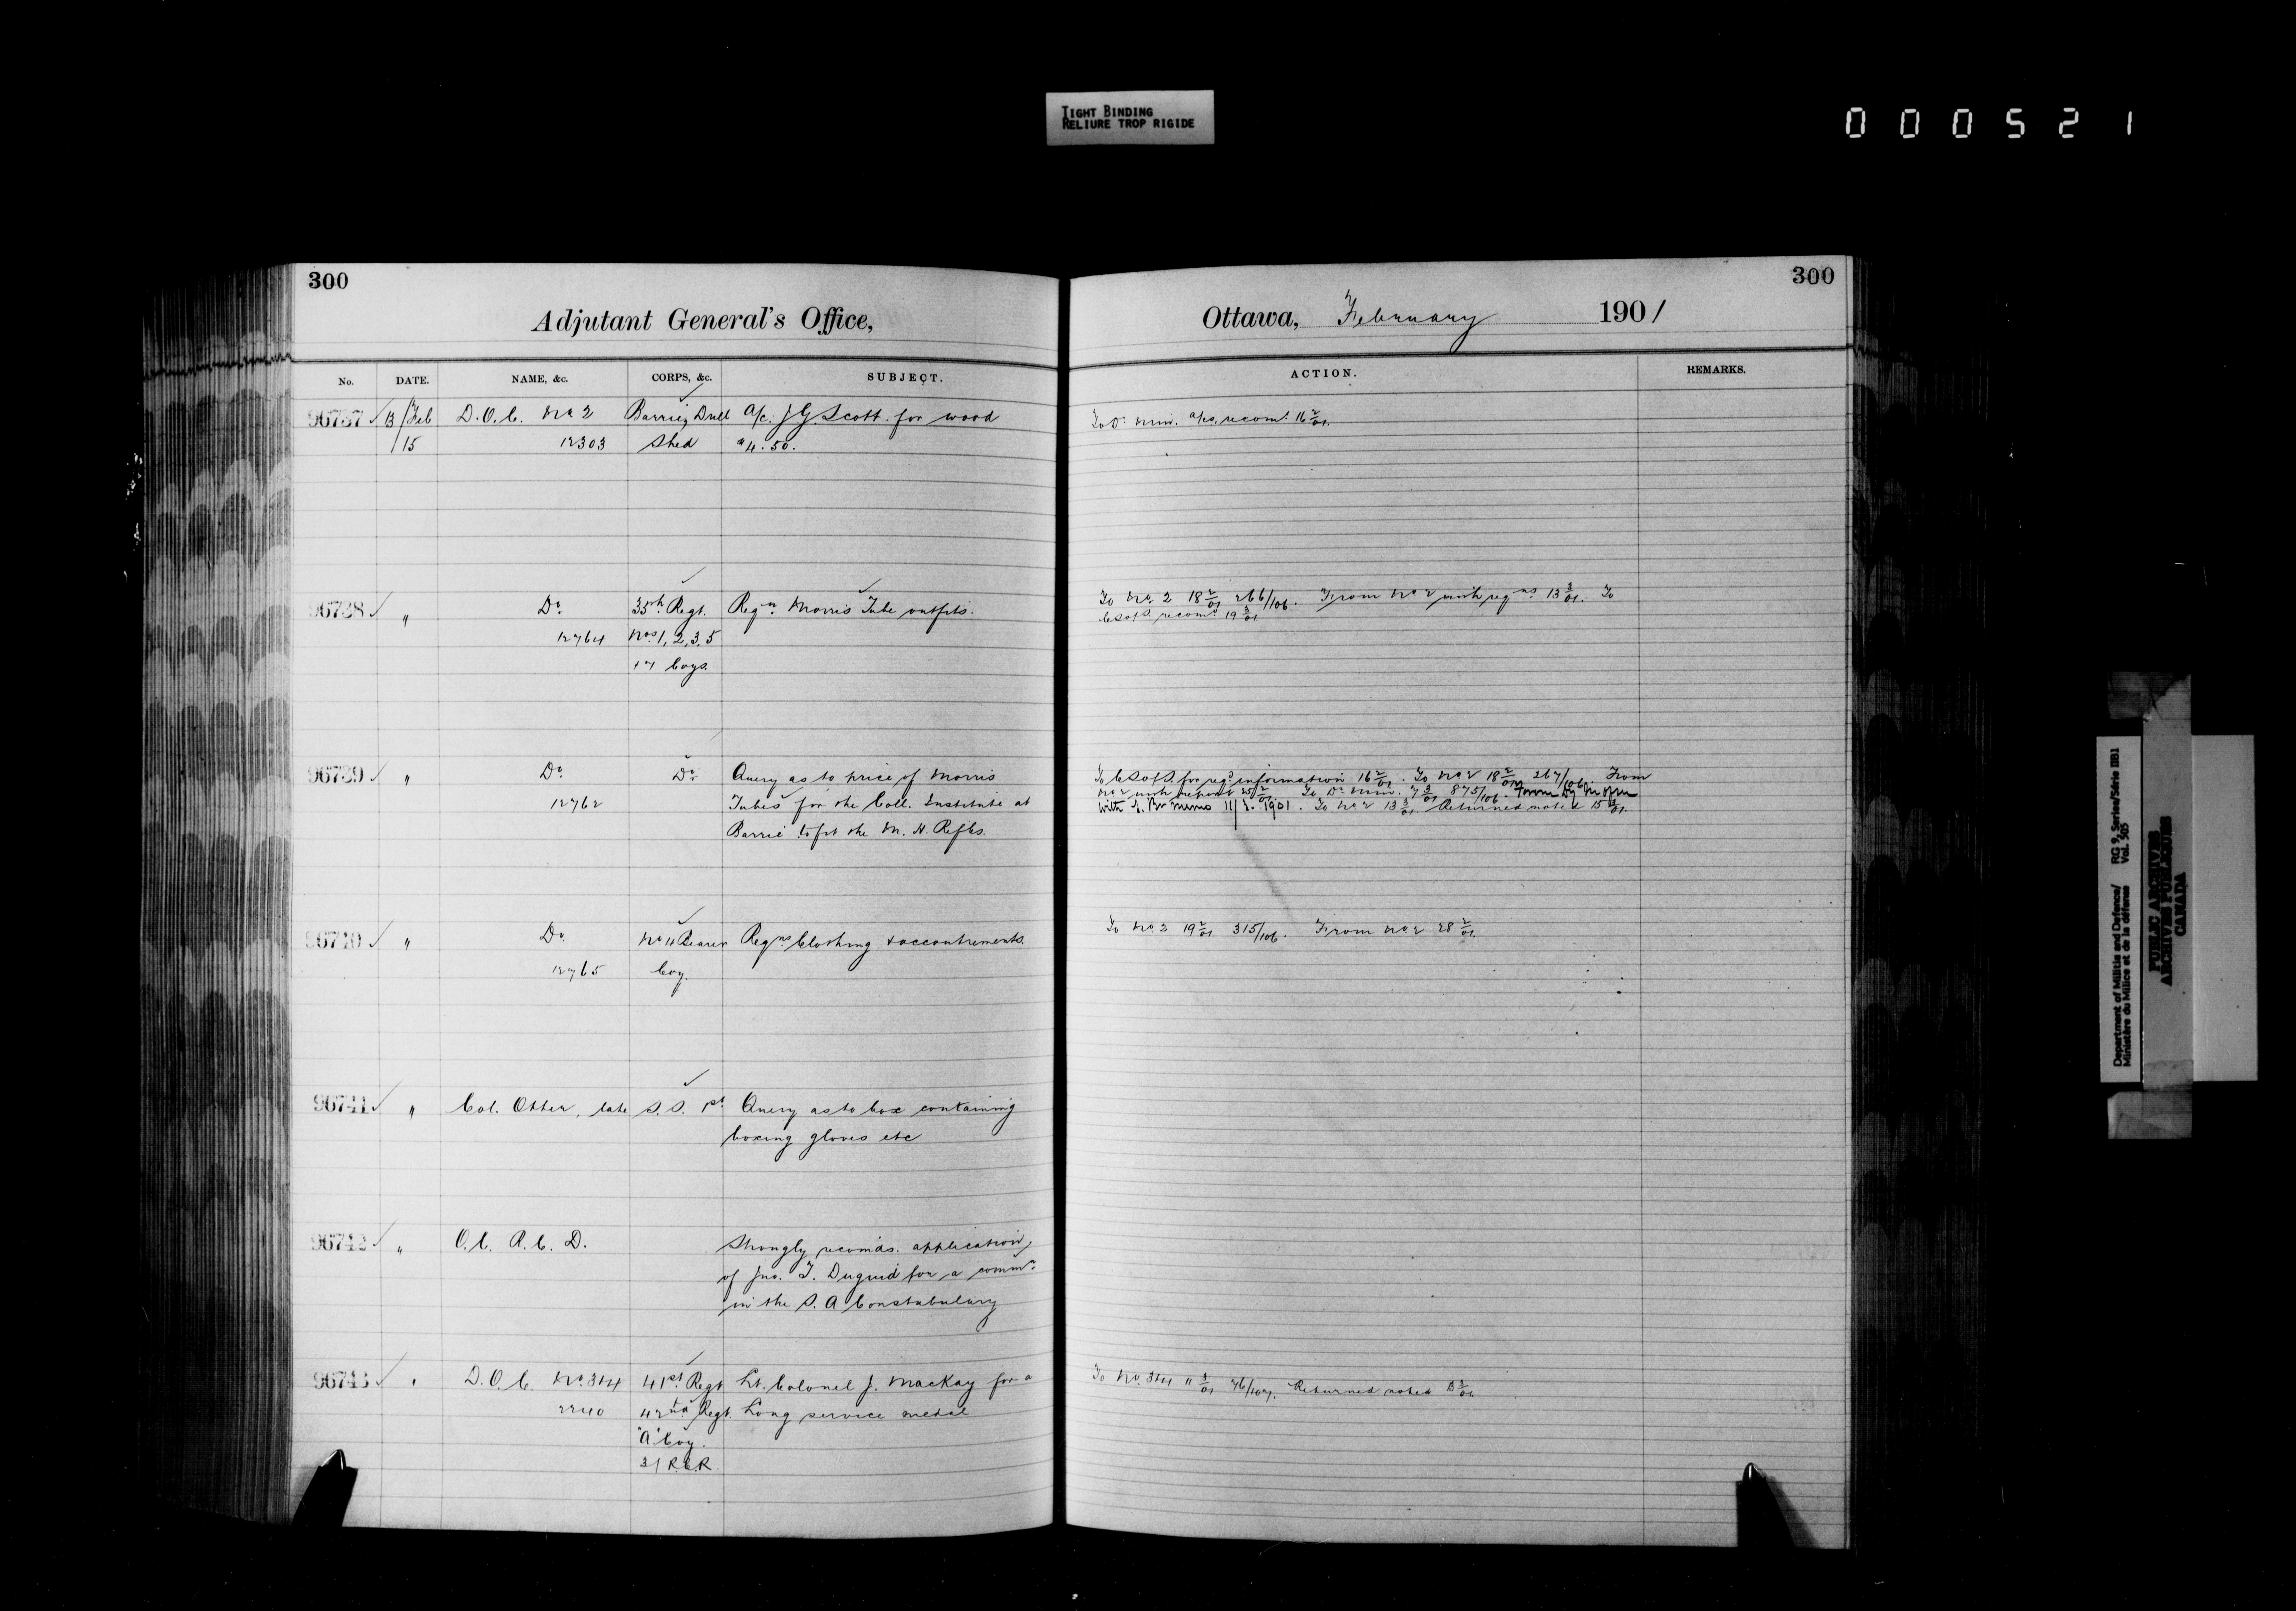 TIGHT BINDING
RELIURE TROP RIGIDE
000521
300
Adjutant General's Office,
No. DATE. NAME, &c. CORPS, &c. SUBJECT.
96737 13/Feb D.O.C. No 2 Barrie Drill a/c. J G. Scott. for wood
/15 12303 Shed $4.50.
96738 " Do 35th Regt. Reqn Morris Tube outfits.
12764 Nos 1, 2, 3, 5
+ 7 Coys.
96739 " Do Do Query as to price of Morris
12762 Tubes for the Coll. Institute at
Barrie to fit the M. H. Rifles.
96740 " Do No 4 Bearer Reqns Clothing + accoutrements.
12765 Coy.
96741 " Col. Otter, late S.S. Query as to box containing
boxing gloves etc
96742 " O.C. A.C. D. Strongly recomds. application
of Jno. T. Duguid for a commn
in the S. A Constabulary
96743 " D.O.C. No. 3+4 41st Regt Lt. Colonel J. MacKay for a
2240 42nd Regt. Long service medal
"A" Coy.
3/ R.C.R.
300
Ottawa, February 1901
ACTION. REMARKS.
To D. Min. a/cs. recomd 16 2/01.
To No 2 18 2/01 266/106. From No 2 with reqns 13 3/01. To
C S of S recomd 19 3/01
To C S of S. for reqd information 16 2/01. To No 2 18 2/01 267/106. From
No 2 with report 25/2/01 To D. Min. 7 3/01 875/106. From
with Memo 11/3. 1901. To No 2 13 3/01. Returned noted 15 3/01.
To No 2 19 2/01 315/106. From No 2 28 2/01.
To No. 3+4 11 3/01 76/107. Returned noted 13 3/01
Department of Militia and Defence/ RG 9, Series/Série IIB1
Ministère du Milice et de la défense Vol. 505
PUBLIC ARCHIVES
ARCHIVES PUBLIQUES
CANADA